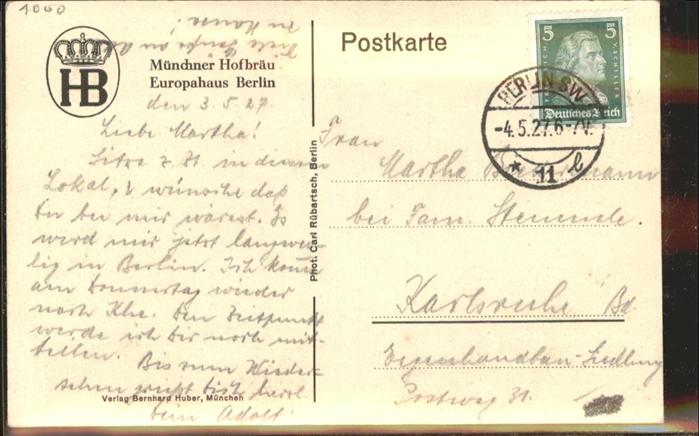 1000
Viele Grüße an
zu Hause!
HB
Münchner Hofbräu
Europahaus Berlin
Postkarte
5 5
Deutsches Reich
BERLIN SW
-4.5.27.6-7V.
* 11 l
den 3.5.27.
Liebe Martha!
Sitze z. Zt. in diesem
Lokal, & wünsche daß
Du bei mir wärest. Es
wird mir jetzt langwei-
lig in Berlin. Ich komme
am Donnerstag wieder
nach Khe. Den Zeitpunkt
werde ich Dir noch mit-
teilen. Bis zum Wieder-
sehen grüßt Dich herzl.
Dein Adolf.
Phot. Carl Rübartsch, Berlin
Frau
Martha
bei Fam.
Karlsruhe Bd.
Eigenhandbau-Siedlung
Postweg 31.
Verlag Bernhard Huber, München